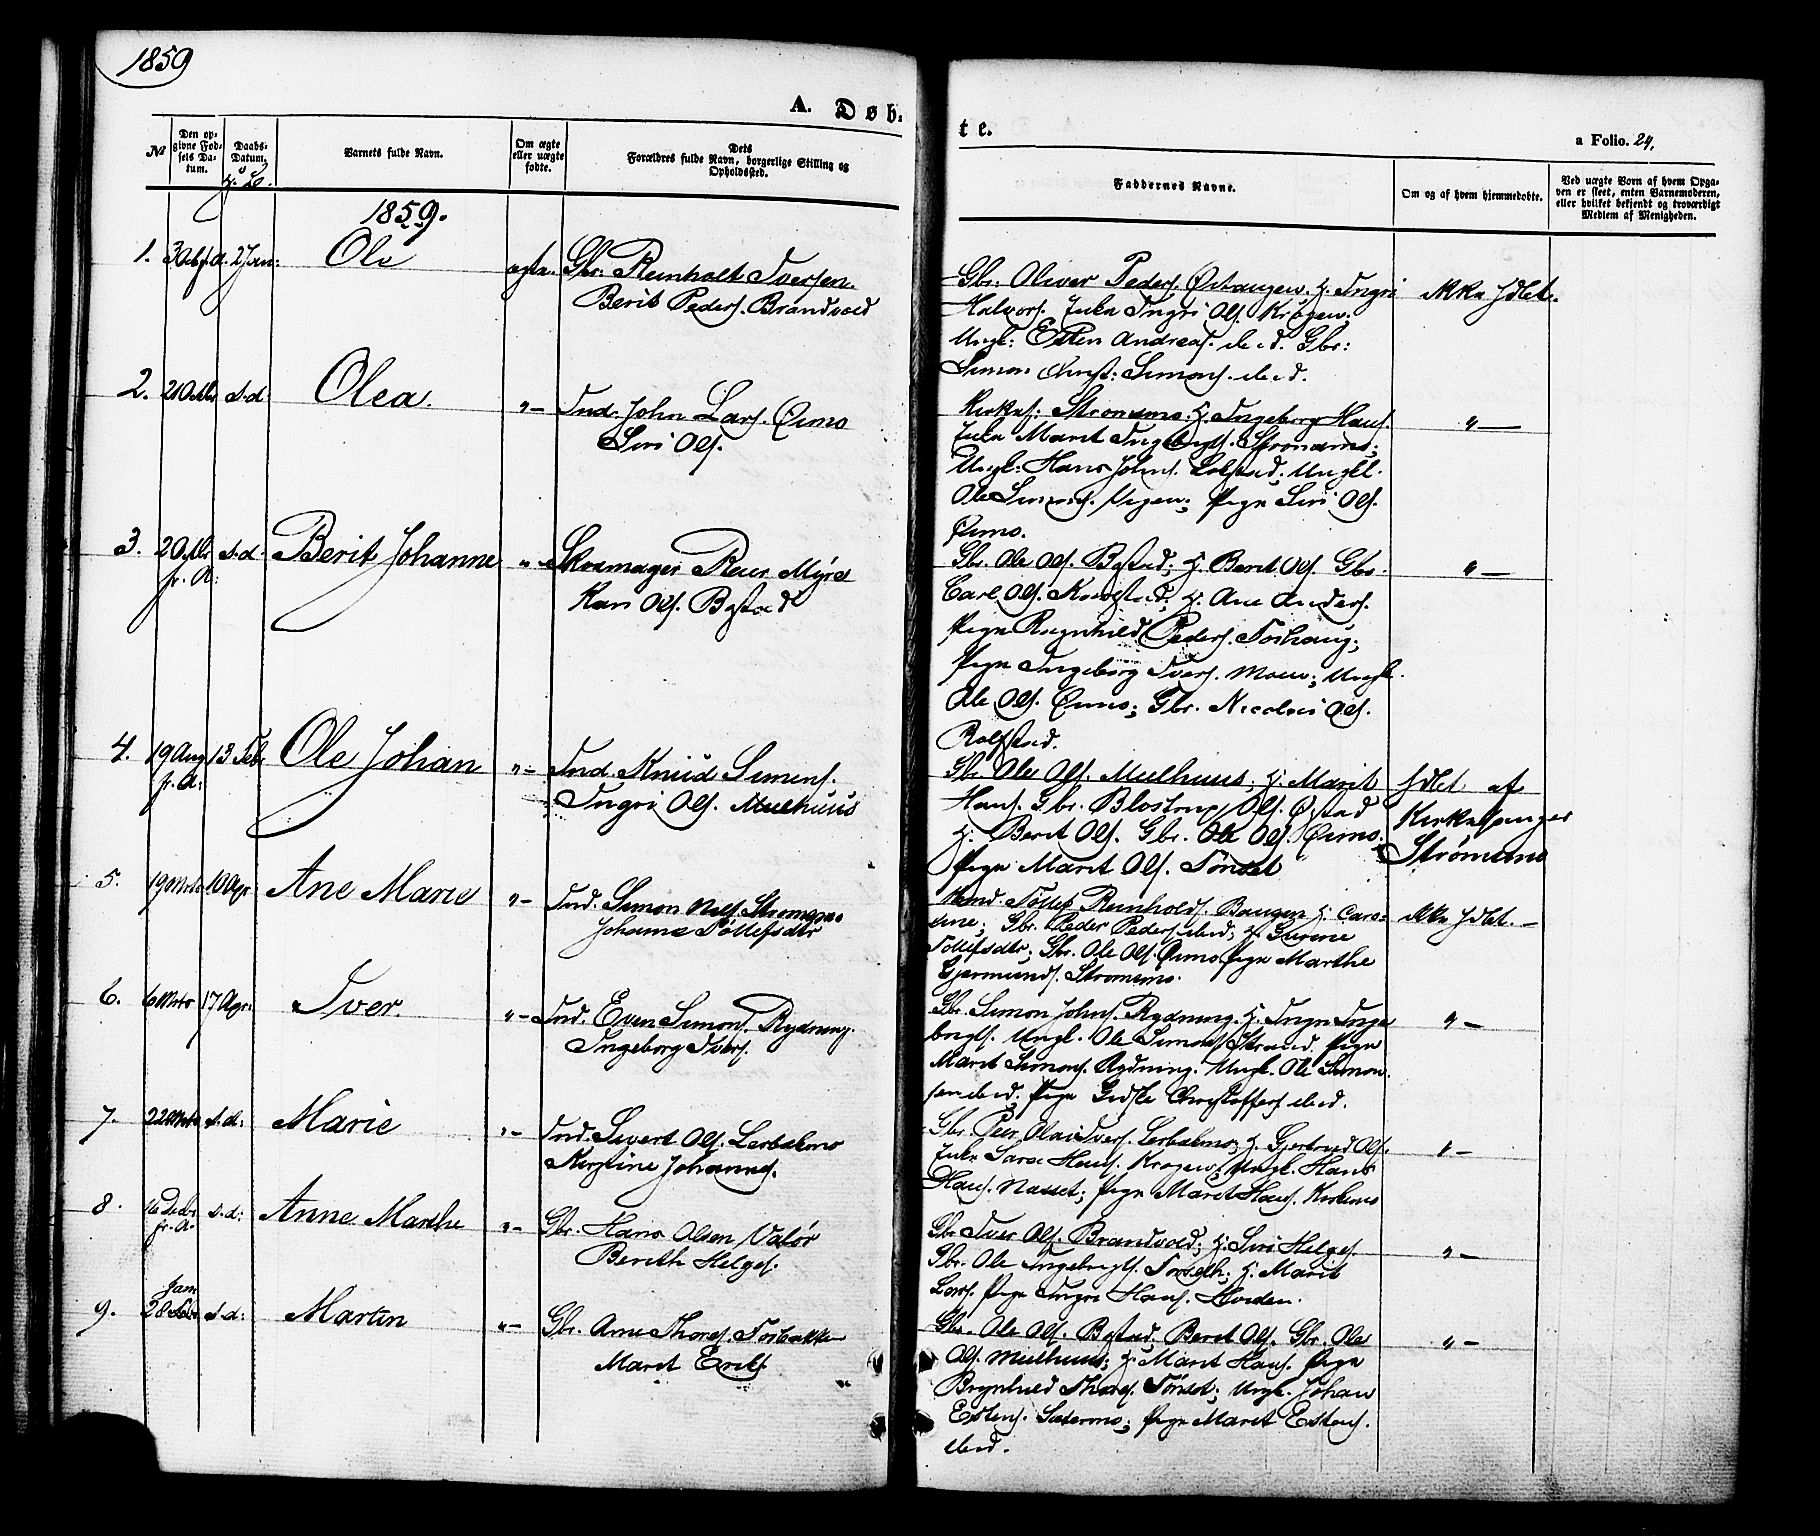 1859
A. Døb-
te.
a Folio. 24.
№
Den op-
givne Fød-
sels Da-
tum.
Daabs-
Datum.
Barnets fulde Navn.
Om ægte
eller uægte
fødte.
Dets
Forældres fulde Navn, borgerlige Stilling og
Opholdssted.
Faddernes Navne.
Om og af hvem hjemmedøbte.
Ved uægte Børn af hvem Opga-
ven er skeet, enten Barnemoderen,
eller hvilket bekjendt og troværdigt
Medlem af Menigheden.
1859.
1. 2 Jan: Ole ægte. Gbr. Reinholt Iversen.
Berit Peders. Brandvold
Gbr: Oliver Peders. Østangen. H. Ingri
Halvors. Enke Ingri Ols. Krogen;
Ungk: Esten Andreas. ibid. Gbr:
Simon Christ: Simons. ibid.
ikke hdbt.
2. s.d. Olea. "- Ind. John Lars. Ørmo
Siri Ols.
Kirkes: Strømsmo. H. Ingeborg Hans.
Enke Marit Ingebrigts. Strømsmo;
Ungk: Hans Johns. Ungk.
Ole Simons. Pige Siri Ols.
Ørmo.
"-
3. 20 s.d. Berit Johanne "- Skomager Peer Myre
fr. A: Kari Ols. Bøstad
Gbr. Ole Ols. Bøstad; H. Berit Ols. Gbr.
Carl Ols. H. Ane Anders.
Pige Ragnhild Peders. Torhaug;
Pige Ingeborg Ivers. Moen; Ungk.
Ole Ols. Ørmo; Gbr. Nicolai Ols.
Rolfstad.
"-
4. 19 Aug 13 Feb. Ole Johan "- Ind. Knud Simens.
fr. A: Ingri Ols. Mulhuus
Gbr. Ole Ols. Mulhuus; H. Marit
Hans. Gbr. Ols. Øystad
H. Berit Ols. Gbr. Ole Ols. Ørmo.
Pige Marit Ols. Tønset
hdbt af
Kirkesanger
Strømsmo
5. 19 Marts 10 Apr Ane Marie "- Ind. Simon Nils. Strømsmo
Johanne Tollefsdtr
Tollef Reinholds. Baugen H. Caro-
line; Gbr. Peder Peders. ibid; H. Gurine
Tollefsdtr; Gbr. Ole Ols. Ørmo Pige Marthe
Gjermunds. Strømsmo.
ikke hdbt. -
6. 6 Marts 17 Apr. Iver. "- Ind. Even Simons. Rydning.
Ingeborg Ivers.
Gbr. Simon Johns. Rydning. H. Ingri Inge
brigts. Ungk. Ole Simons. Strand. Pige
Marit Simons. Rydning. Ungk. Ole Simon
sen ibid. Pige Gidske Christoffers. ibid.
"-
7. 22 Marts s.d: Marie "- Ind. Sivert Ols. Lerbakmo
Kirstine Johannes.
Gbr. Peer Olai Ivers. Lerbakmo; H. Gjertrud Ols.
Enke Sara Hans. Krogen; Ungk. Hans
Hans. Næsset; Pige Marit Hans. Kirkmo
"-
8. s.d: Anne Marthe "- Gbr. Hans Olsen Valør
fr. A. Bereth Helges.
Gbr Iver Ols. Brandvold; H. Siri Helges.
Gbr. Ole Ingebrigts. H. Marit
Lars. Pige Ingri Hans. Hviden.
"-
Jan
9. 28 Febr s.d: Martin "- Gbr. Arne Thores. Torbakke
Marit Eriks.
Gbr. Ole Ols. Bøstad. Berit Ols. Gbr. Ole
Ols. Mulhuus; H. Marit Hans. Pige
Brynhild Thores. Tønset; Ungk. Johan
Estens. Sætermo; Pige Marit Estens.
ibid.
"-